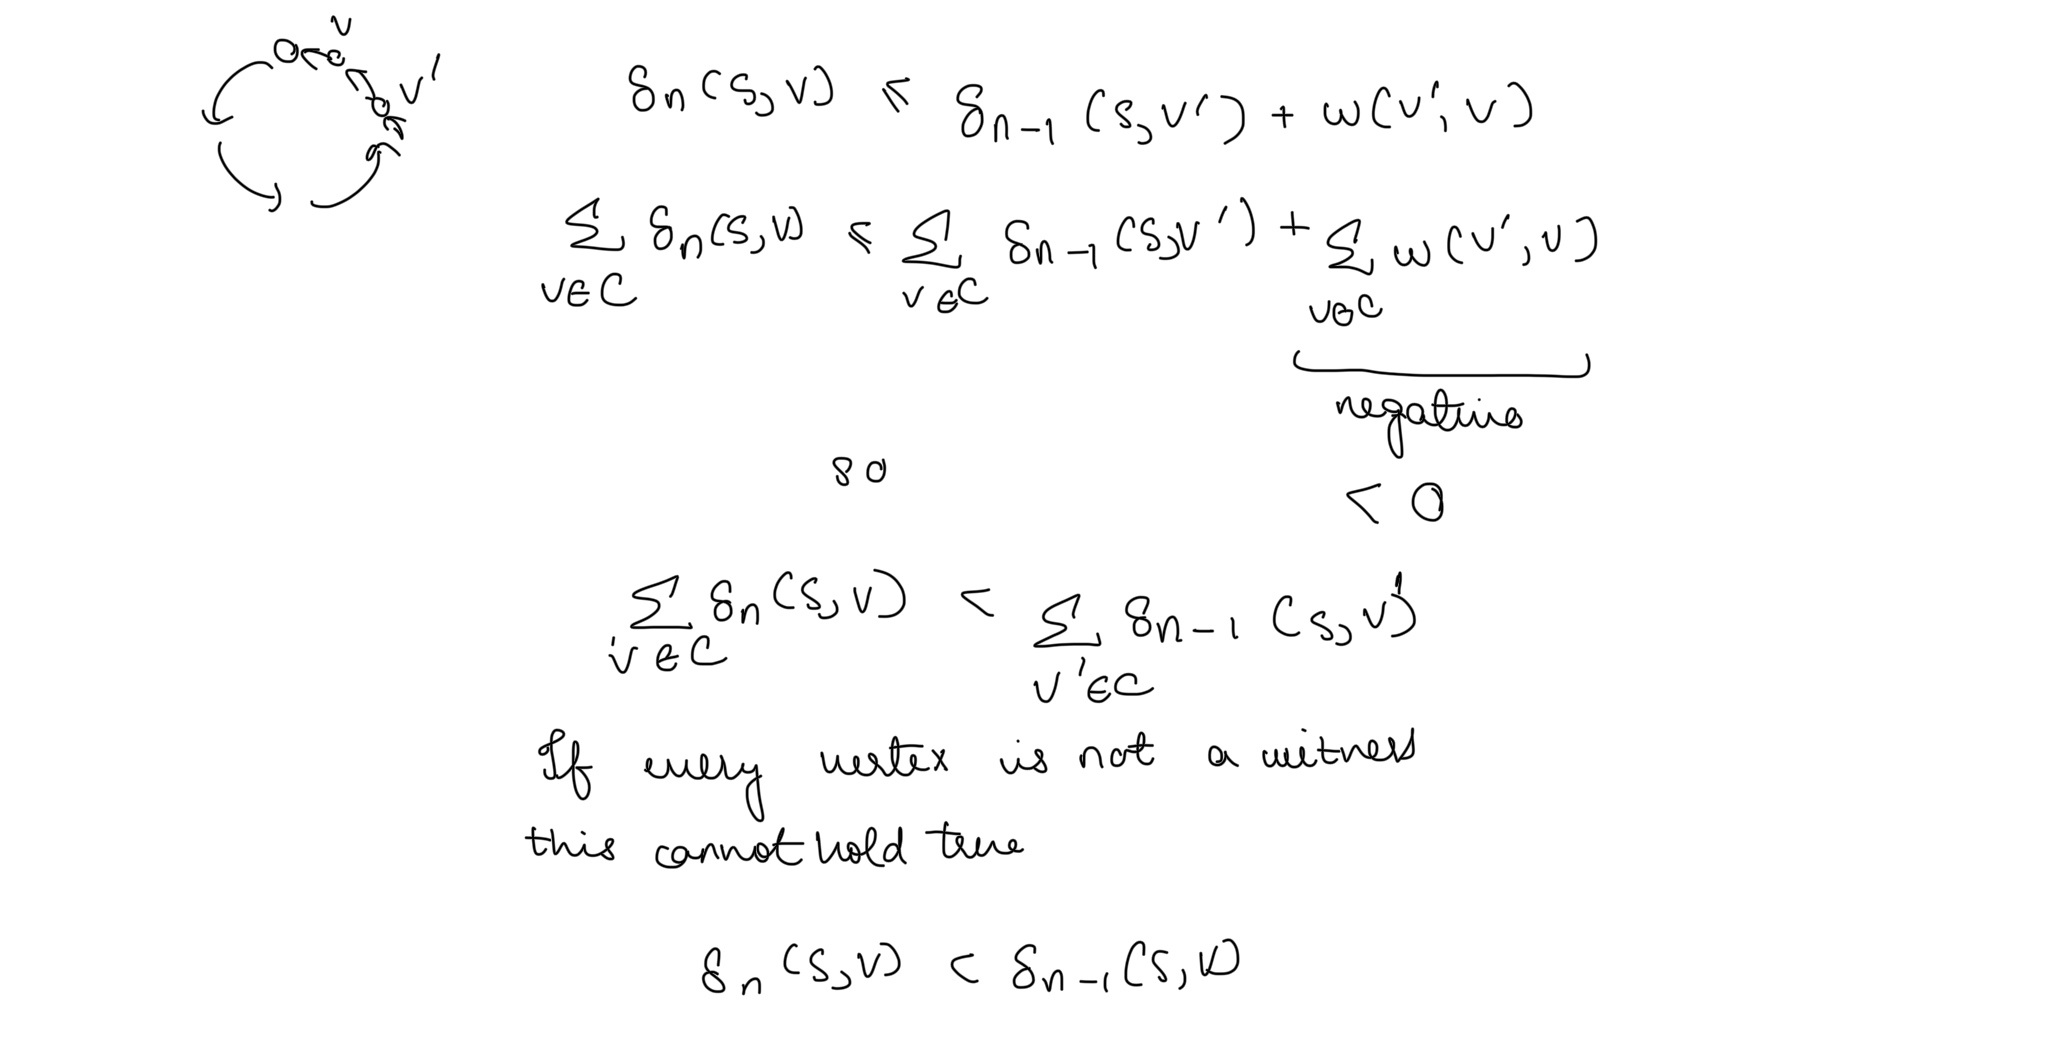 v
v'
δn(s,v) ≤ δn-1(s,v') + w(v',v)
∑ δn(s,v) ≤ ∑ δn-1(s,v') + ∑ w(v',v)
v∈C v∈C v∈C
negative
so
< 0
∑ δn(s,v) < ∑ δn-1(s,v')
v∈C v'∈C
If every vertex is not a witness
this cannot hold true
δn(s,v) < δn-1(s,v)